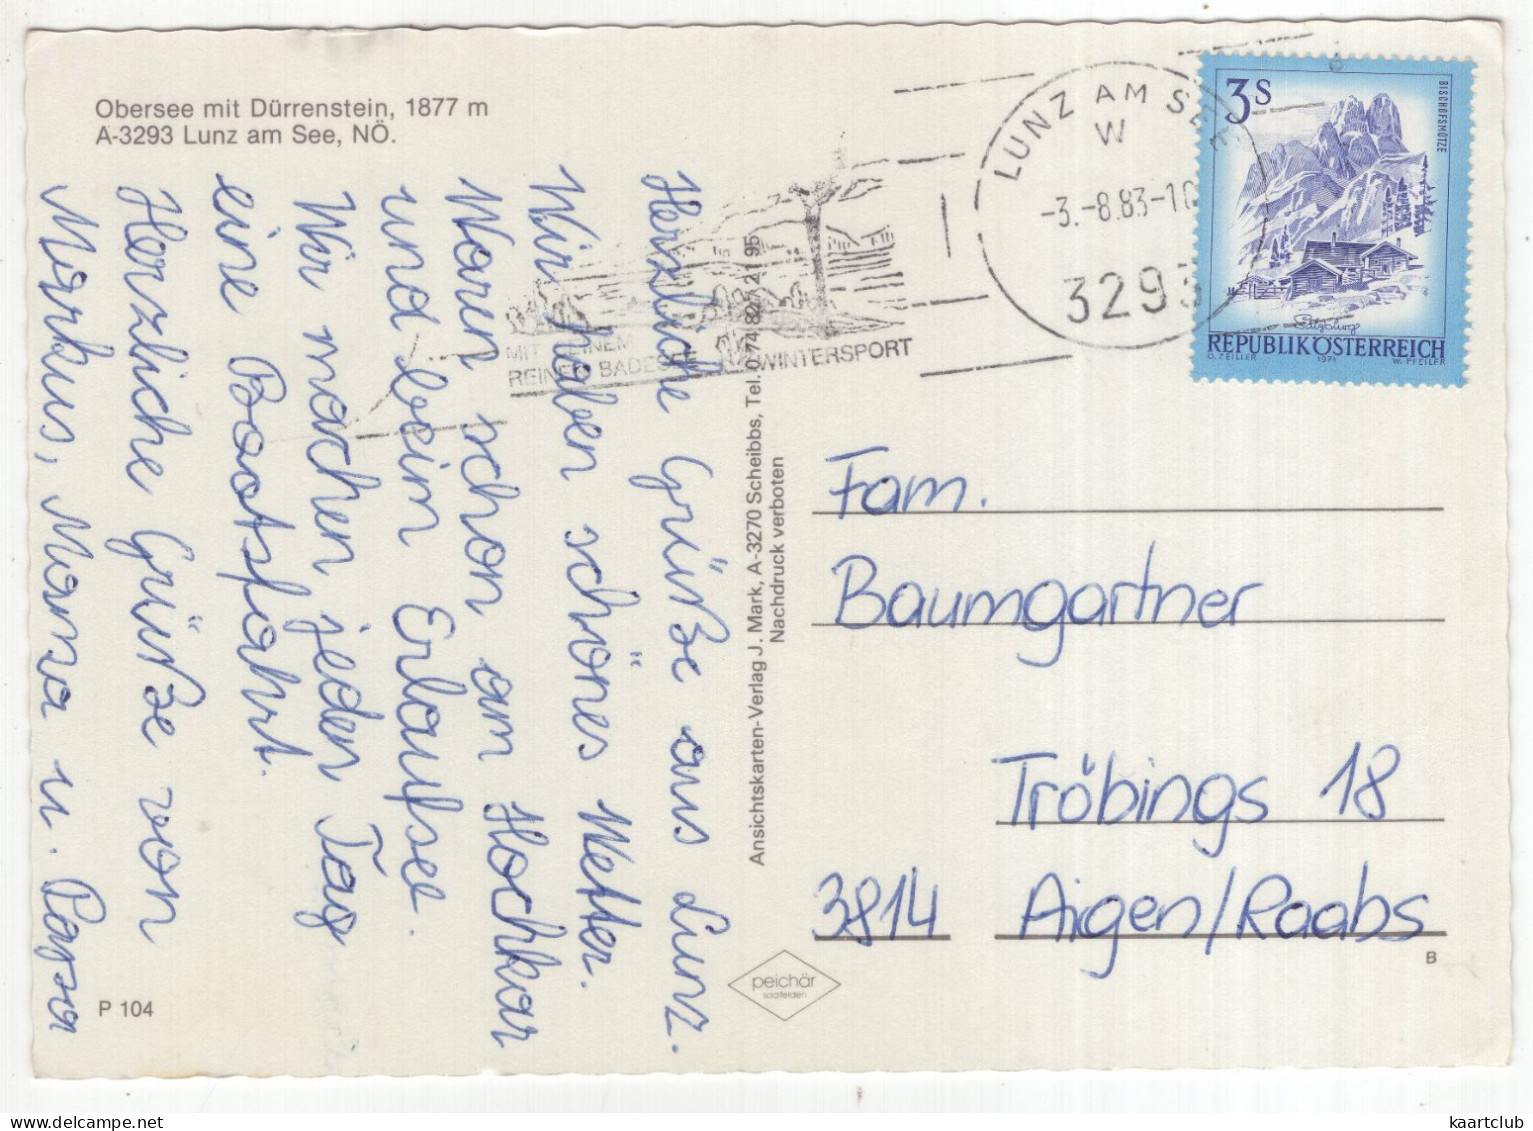 Obersee mit Dürrenstein, 1877 m
A-3293 Lunz am See, NÖ.
Herzliche Grüße aus Lunz.
Wir haben schönes Wetter.
Waren schon am Hochkar
und beim Erlaufsee.
Wir machen jeden Tag
eine Bootsfahrt.
Herzliche Grüße von
Markus, Mama u. Papa
P 104
MIT SEINEM
REINEN BADESEE WINTERSPORT
Ansichtskarten-Verlag J. Mark, A-3270 Scheibbs, Tel. 0 74 82/ 21 95
Nachdruck verboten
peichär
saalfelden
LUNZ AM SEE
W
-3.-8.83-10
3293
3 S
BISCHOFSMÜTZE
Salzburg
REPUBLIK ÖSTERREICH
O. ZEILLER 1971 W. PFEILER
Fam.
Baumgartner
Tröbings 18
3814 Aigen/Raabs
B
kaartclub